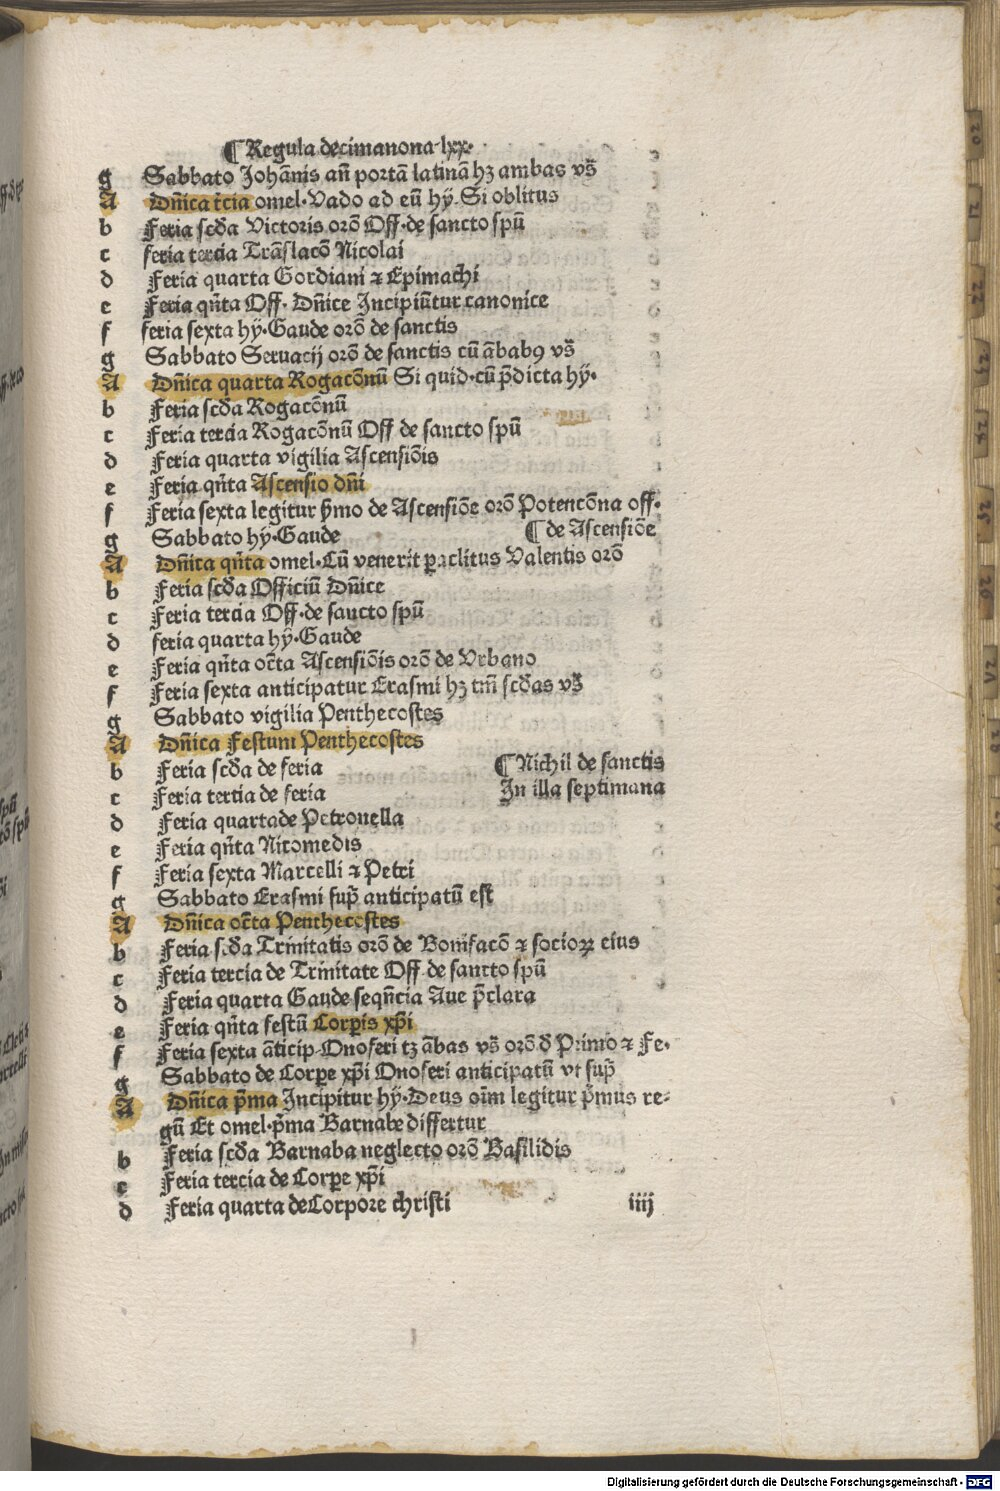 ¶ Regula decimanona·lxx·
g Sabbato Johānis an̄ portā latinā hꝫ ambas vs̄
A Dn̄ica t̄cia omel·Vado ad eū hy̅·Si oblitus
b Feria sc̄da Victoris orō Off·de sancto spū
c feria tercia Trāslacō Nicolai
d Feria quarta Gordiani ⁊ Epimachi
e Feria qn̄ta Off· Dn̄ice Incipiūtur canonice
f feria sexta hy̅·Gaude orō de sanctis
g Sabbato Seruacij orō de sanctis cū ābabꝰ vs̄
A Dn̄ica quarta Rogacōnū Si quid·cū p̄dicta hy̅·
b Feria sc̄da Rogacōnū
c Feria tercia Rogacōnū Off de sancto spū
d Feria quarta vigilia Ascensiōis
e Feria qn̄ta Ascensio dn̄i
f Feria sexta legitur p̄mo de Ascensiōe orō Potencōna off·
g Sabbato hy̅·Gaude ¶ de Ascensiōe
A Dn̄ica qn̄ta omel·Cū venerit ꝑaclitus Valentis orō
b Feria sc̄da Officiū Dn̄ice
c Feria tercia Off·de sancto spū
d feria quarta hy̅·Gaude
e Feria qn̄ta oc̄ta Ascensiōis orō de Vrbano
f Feria sexta anticipatur Erasmi hꝫ tm̄ sc̄das vs̄
g Sabbato vigilia Penthecostes
A Dn̄ica Festum Penthecostes
b Feria sc̄da de feria ¶ Nichil de sanctis
c Feria tertia de feria In illa septimana
d Feria quartade Petronella
e Feria qn̄ta Nicomedis
f Feria sexta Marcelli ⁊ Petri
g Sabbato Erasmi sup̄ anticipatū est
A Dn̄ica oc̄ta Penthecostes
b Feria sc̄da Trinitatis orō de Bonifacō ⁊ socioꝝ eius
c Feria tercia de Trinitate Off de sancto spū
d Feria quarta Gaude seqn̄cia Aue p̄clara
e Feria qn̄ta festū Corꝑis xp̄i
f Feria sexta āticip·Onoferi tꝫ ābas vs̄ orō đ Primo ⁊ Fe·
g Sabbato de Corꝑe xp̄i Onoferi anticipatū vt sup̄
A Dn̄ica p̄ma Incipitur hy̅·Deus oīm legitur p̄mus re⸗
gū Et omel·p̄ma Barnabe differtur
b Feria sc̄da Barnaba neglecto orō Basilidis
c Feria tercia de Corꝑe xp̄i
d Feria quarta deCorpore christi iiij
Digitalisierung gefördert durch die Deutsche Forschungsgemeinschaft · DFG